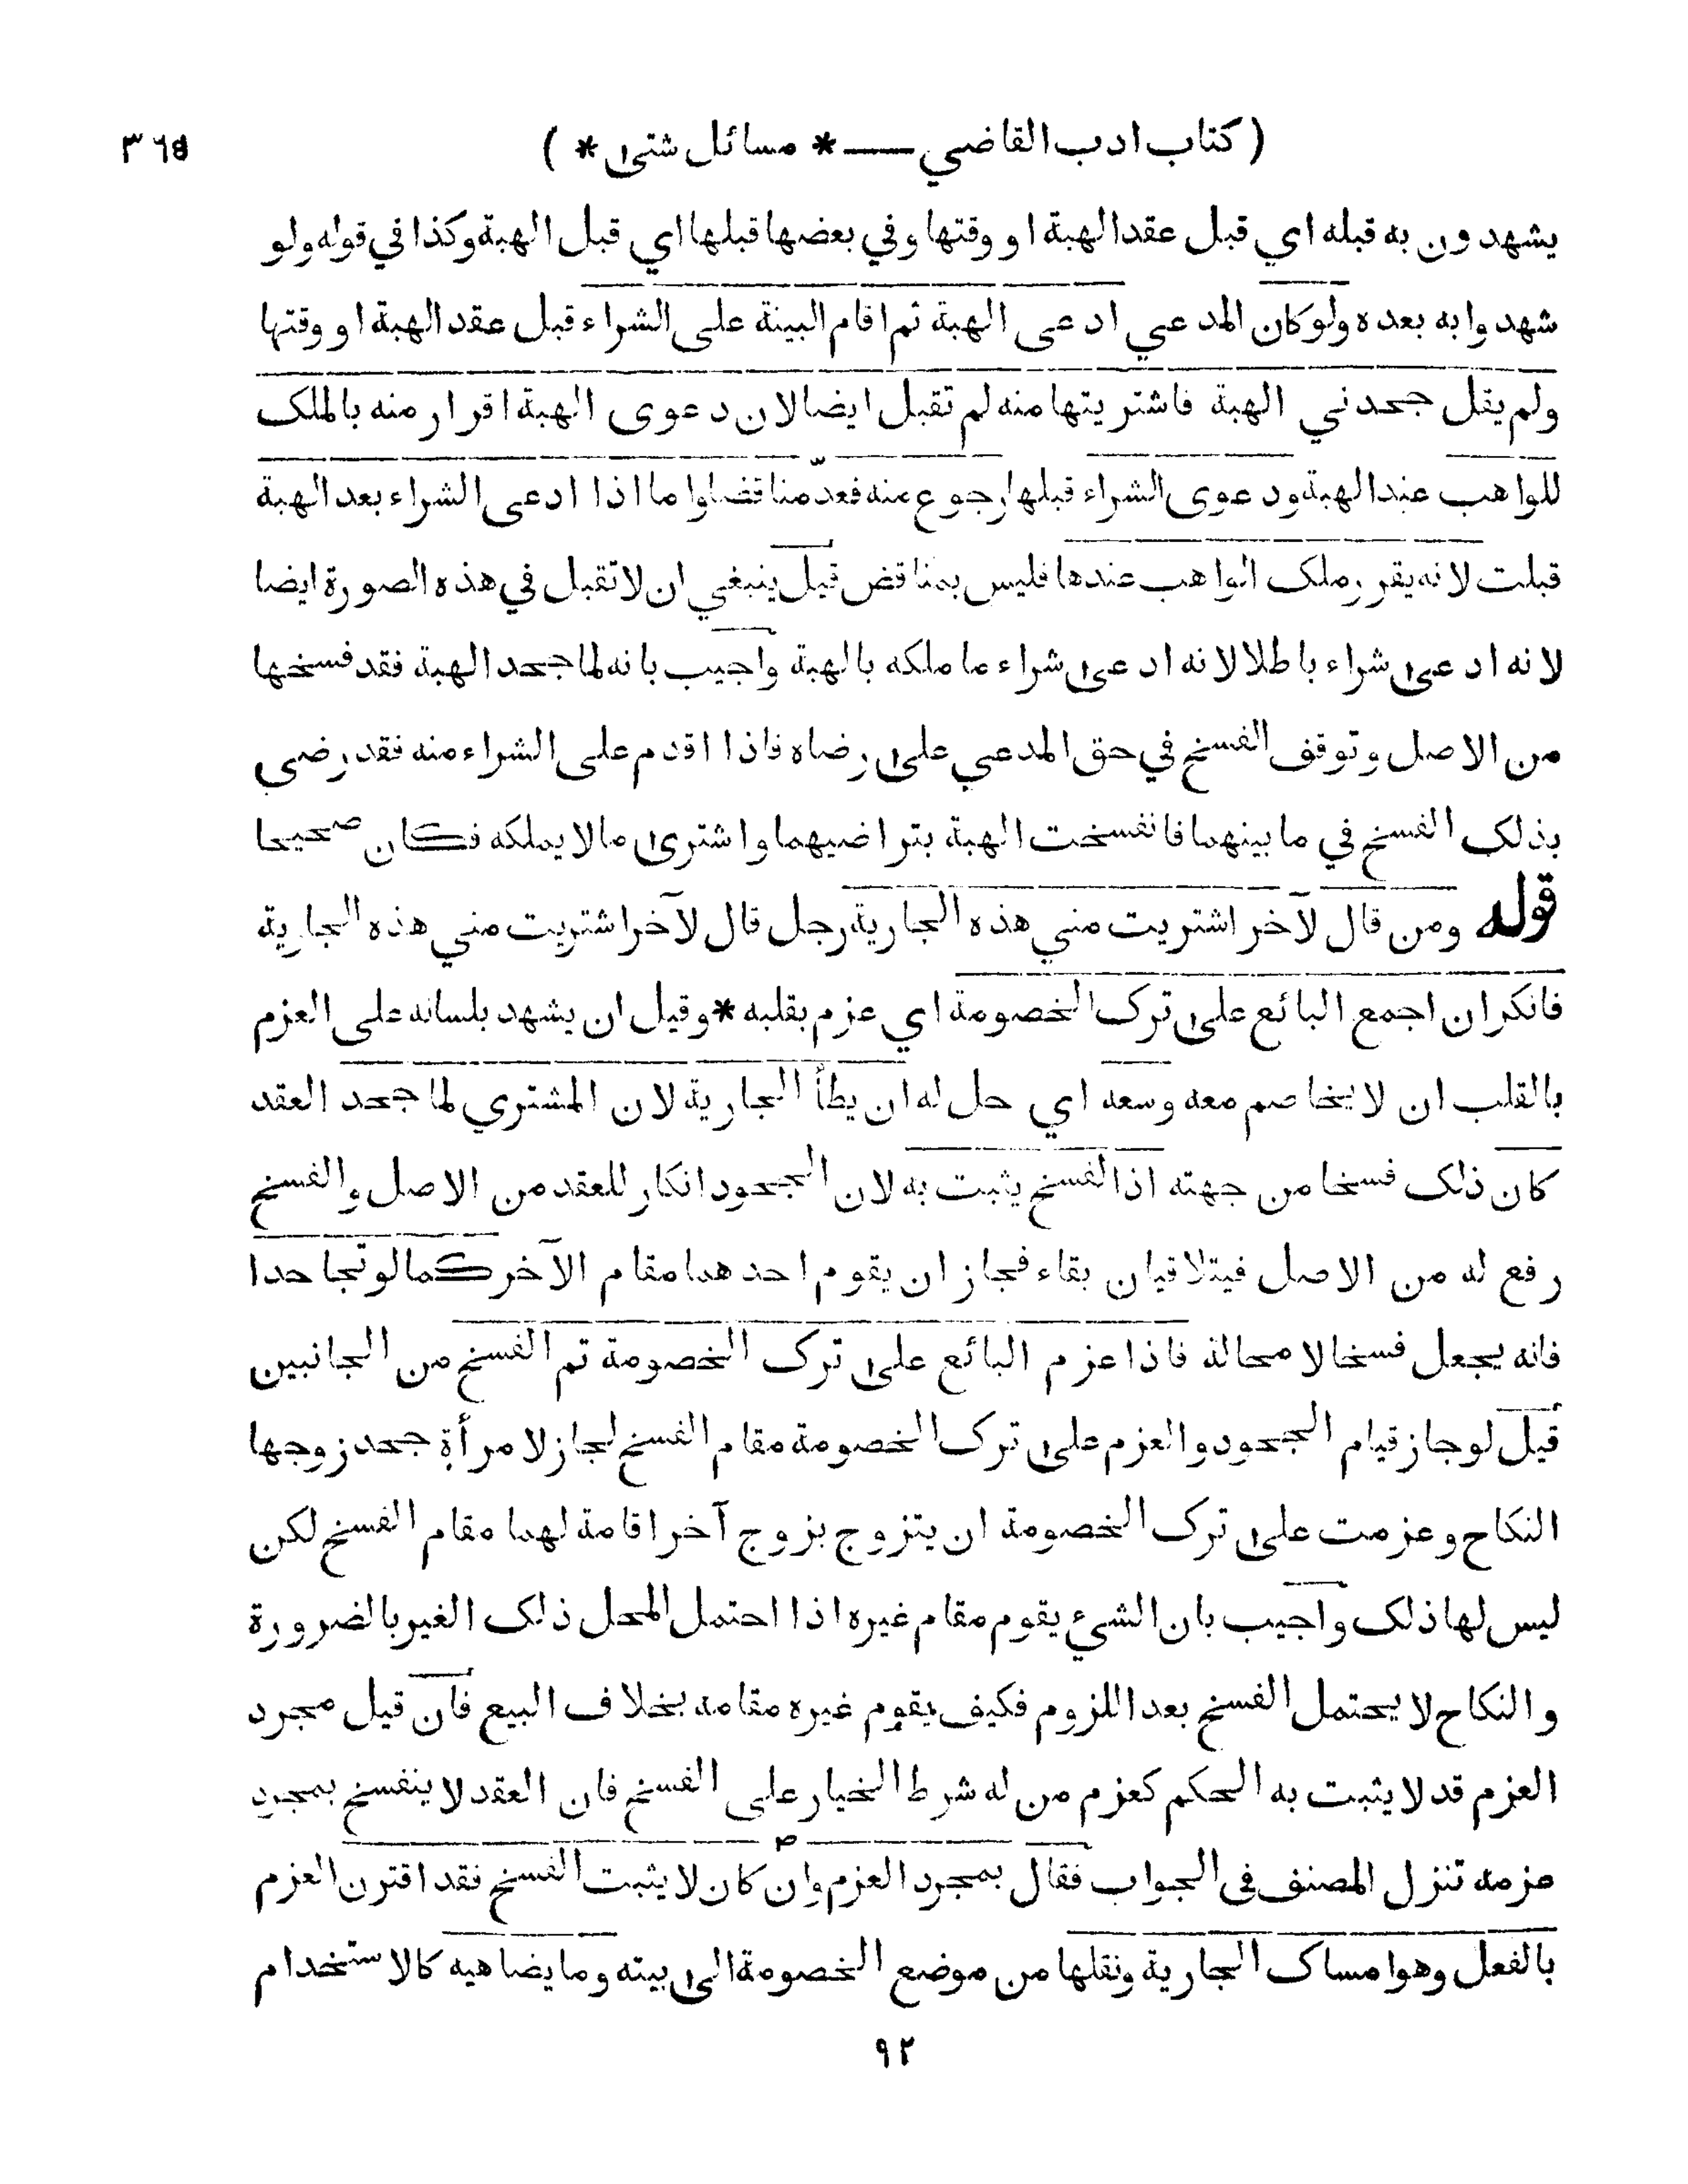 ( كتاب ادب القاضي — * مسائل شتى * ) ٣٦٥
يشهدون به قبله اي قبل عقد الهبة او وقتها وفي بعضها قبلها اي قبل الهبة وكذا في قوله ولو
شهدوا به بعده ولو كان المدعي ادعى الهبة ثم اقام البينة على الشراء قبل عقد الهبة او وقتها
ولم يقل جحدني الهبة فاشتريتها منه لم تقبل ايضا لان دعوى الهبة اقرار منه بالملك
للواهب عند الهبة ودعوى الشراء قبلها رجوع عنه فعدّ مناقضا واما اذا ادعى الشراء بعد الهبة
قبلت لانه يقرر ملك الواهب عندها فليس بمناقض قيل ينبغي ان لا تقبل في هذه الصورة ايضا
لانه ادعى شراء باطلا لانه ادعى شراء ما ملكه بالهبة واجيب بانه لما جحد الهبة فقد فسخها
من الاصل وتوقف الفسخ في حق المدعي على رضاه فاذا اقدم على الشراء منه فقد رضي
بذلك الفسخ في ما بينهما فانفسخت الهبة بتراضيهما واشترى ما لا يملكه فكان صحيحا
قوله ومن قال لآخر اشتريت مني هذه الجارية رجل قال لآخر اشتريت مني هذه الجارية
فانكر ان اجمع البائع على ترك الخصومة اي عزم بقلبه * وقيل ان يشهد بلسانه على العزم
بالقلب ان لا يخاصم معه وسعه اي حل له ان يطأ الجارية لان المشتري لما جحد العقد
كان ذلك فسخا من جهته اذ الفسخ يثبت به لان الجحود انكار للعقد من الاصل والفسخ
رفع له من الاصل فيتلاقيان بقاء فجاز ان يقوم احدهما مقام الآخر كما لو تجاحدا
فانه يجعل فسخا لا محالة فاذا عزم البائع على ترك الخصومة تم الفسخ من الجانبين
قيل لو جاز قيام الجحود والعزم على ترك الخصومة مقام الفسخ لجاز لامرأة جحد زوجها
النكاح وعزمت على ترك الخصومة ان يتزوج بزوج آخر اقامة لهما مقام الفسخ لكن
ليس لها ذلك واجيب بان الشيء يقوم مقام غيره اذا احتمل المحل ذلك الغير بالضرورة
والنكاح لا يحتمل الفسخ بعد اللزوم فكيف يقوم غيره مقامه بخلاف البيع فان قيل مجرد
العزم قد لا يثبت به الحكم كعزم من له شرط الخيار على الفسخ فان العقد لا ينفسخ بمجرد
عزمه تنزل المصنف في الجواب فقال بمجرد العزم وان كان لا يثبت الفسخ فقد اقترن العزم
بالفعل وهو امساك الجارية ونقلها من موضع الخصومة الى بيته وما يضاهيه كالاستخدام
٩٢